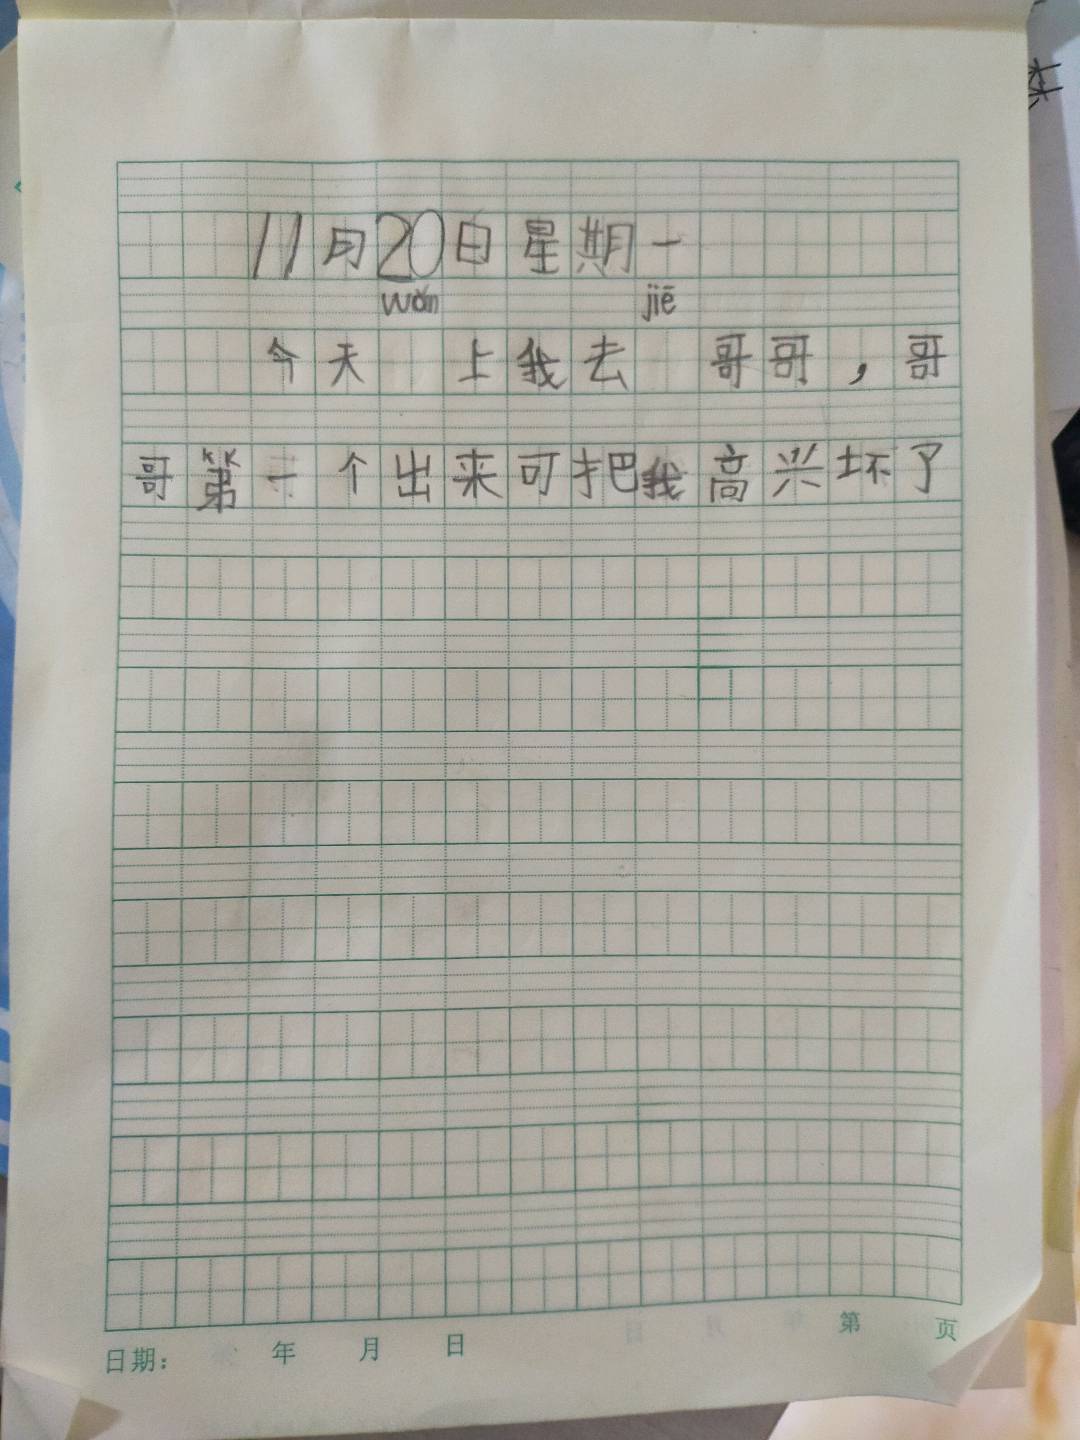 11月20日星期一
wǎn jiē
今天 上我去 哥哥，哥
哥第一个出来可把我高兴坏了
日期： 年 月 日 第 页
林